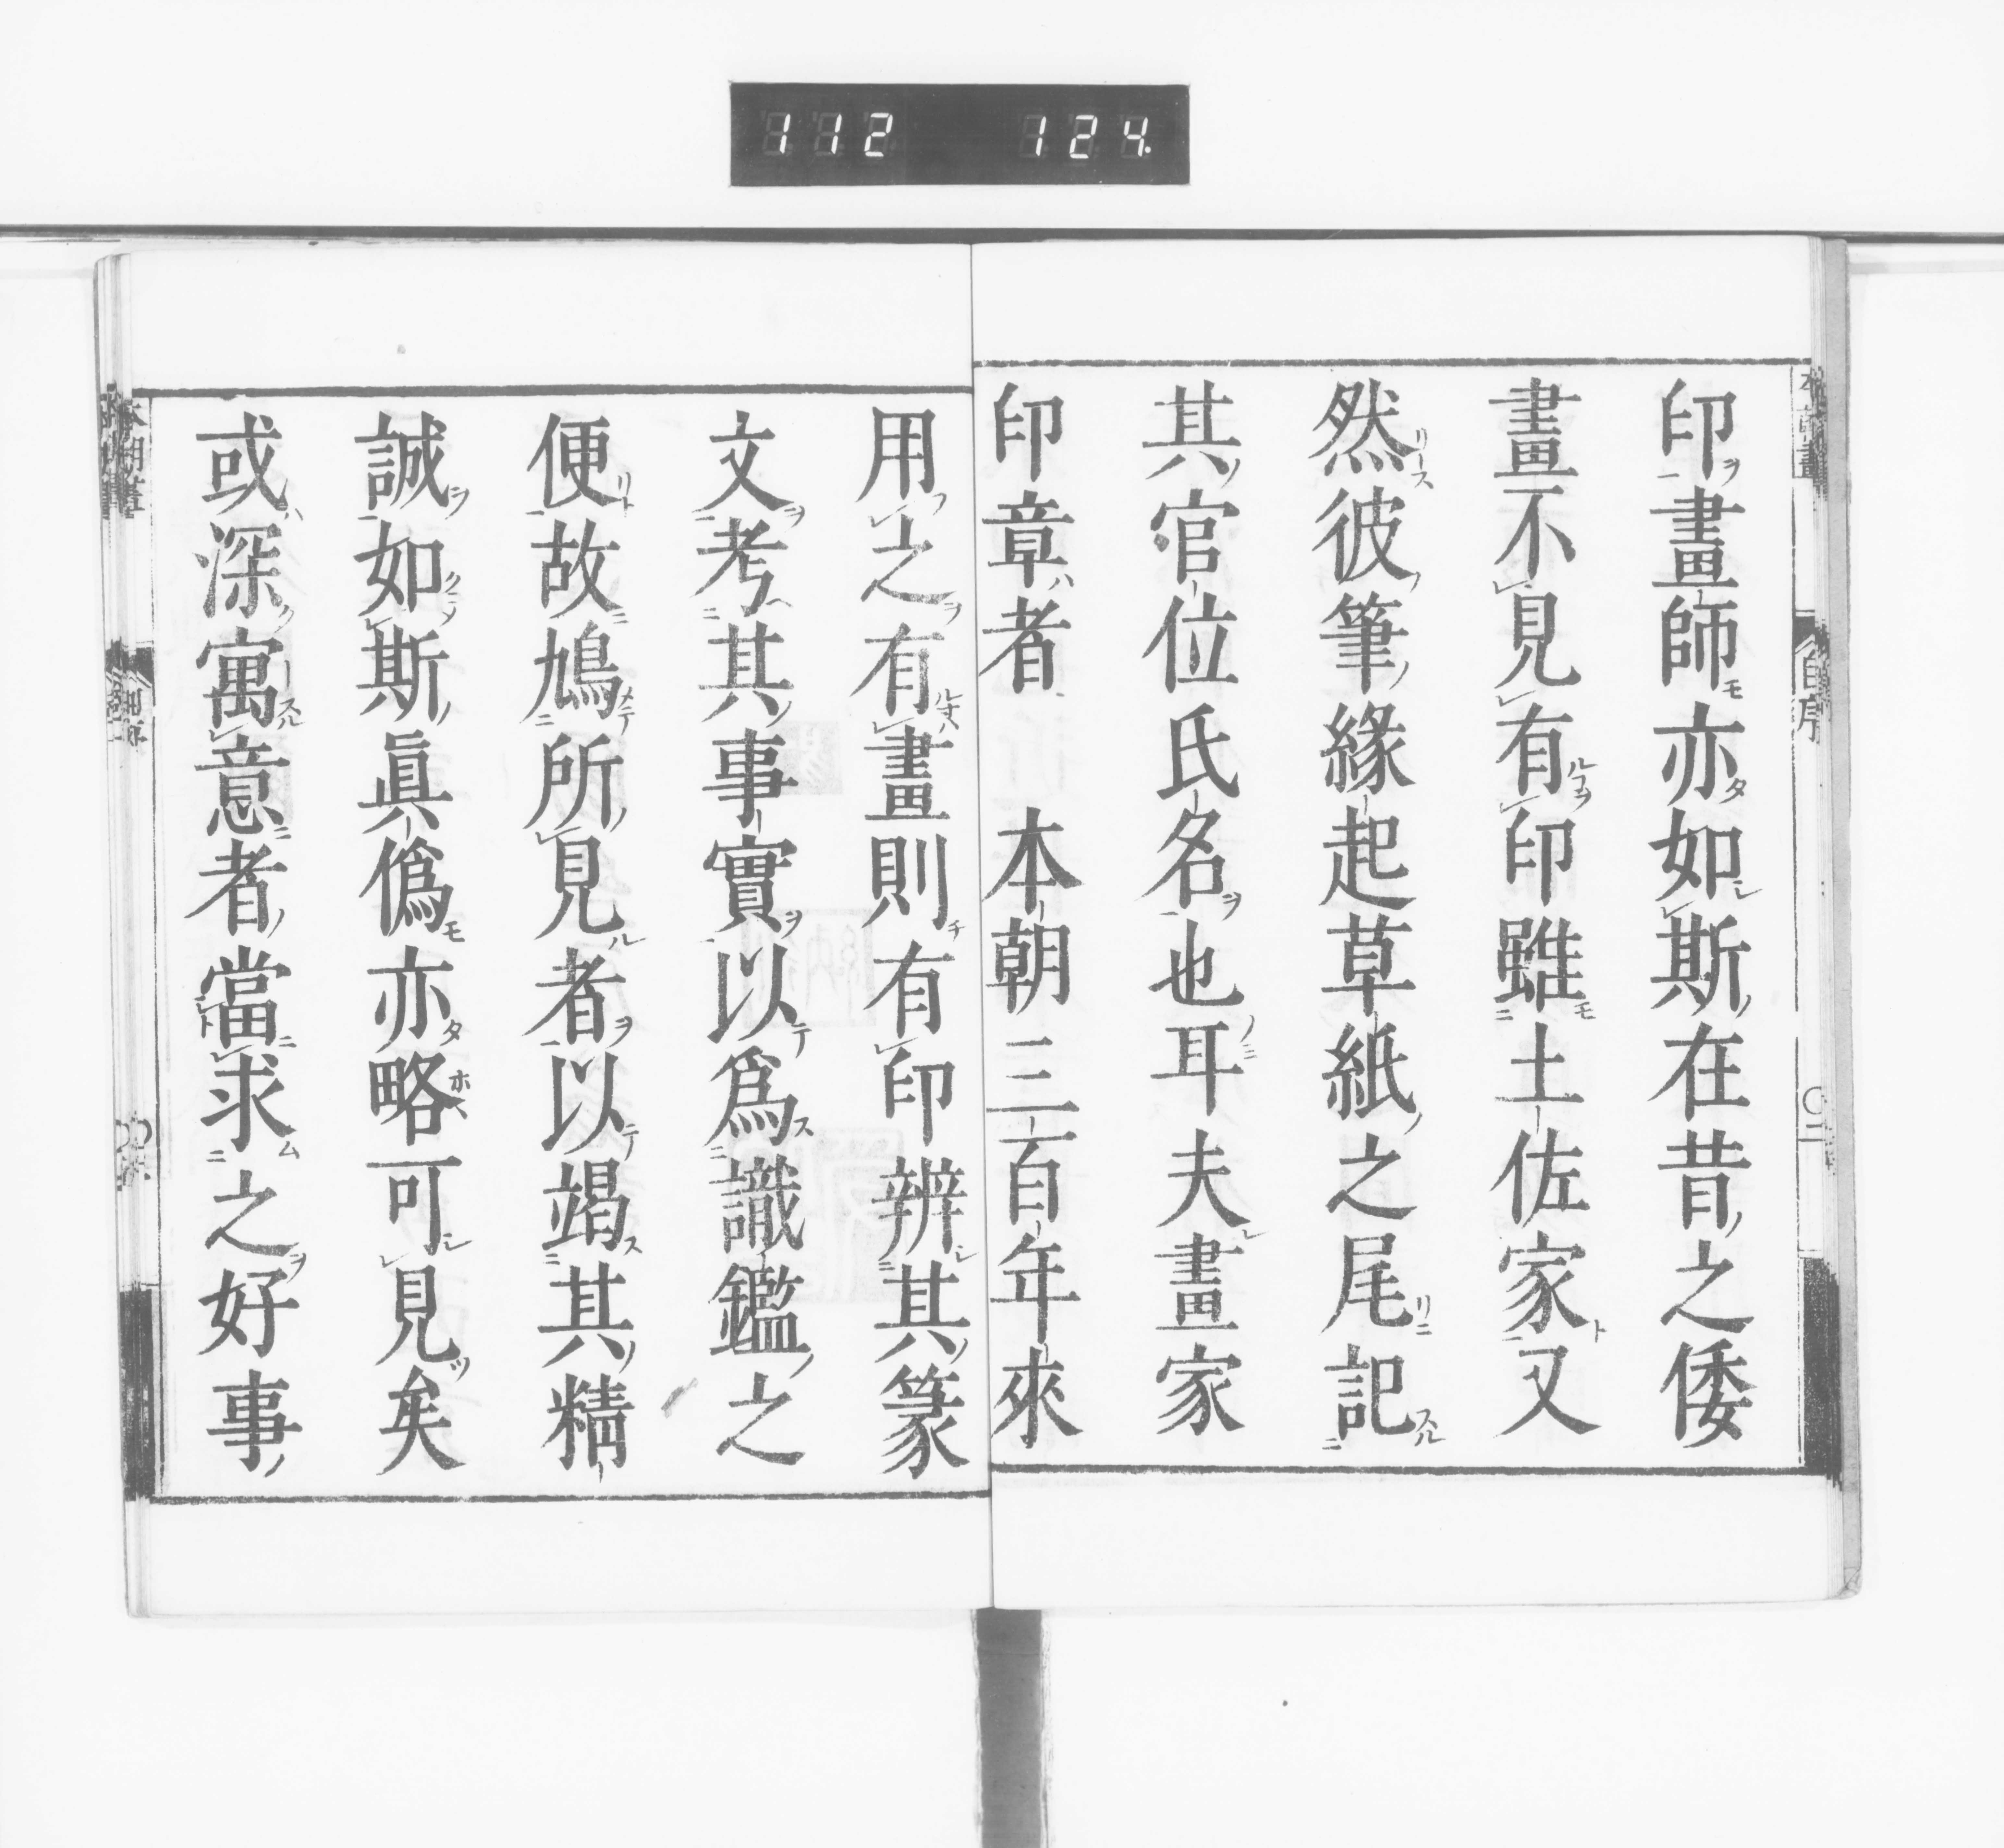 112 124.
印畫師亦如斯在昔之倭
畫不見有印雖土佐家又
然彼筆緣起草紙之尾記
其官位氏名也耳夫畫家
印章者　本朝三百年來
用之有畫則有印辨其篆
文考其事實以爲識鑑之
便故鳩所見者以竭其精
誠如斯眞僞亦略可見矣
或深寓意者當求之好事